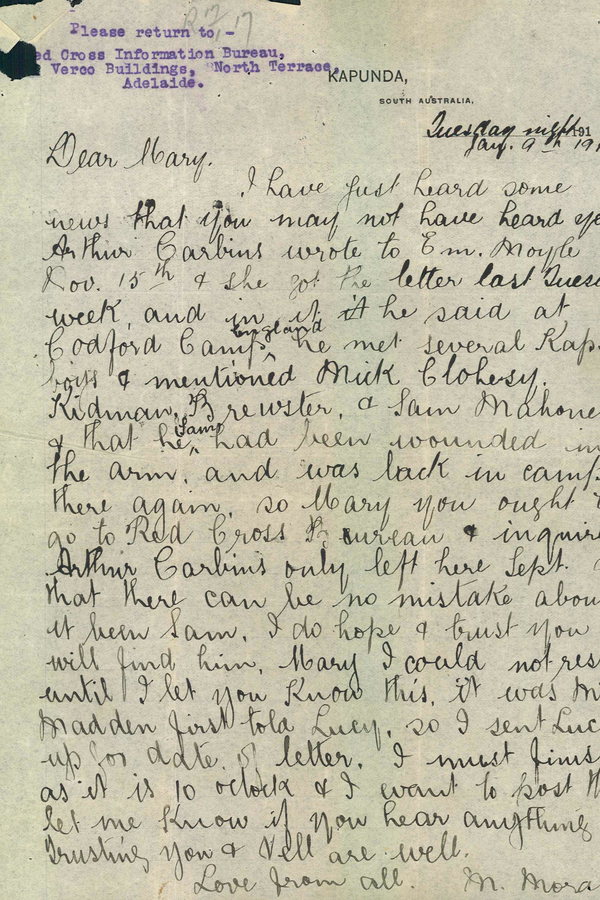 Please return to -
ed Cross Information Bureau,
Verco Buildings, North Terrace,
Adelaide.
KAPUNDA,
SOUTH AUSTRALIA,
Tuesday night 191
Jan. 9th 191
Dear Mary.
I have just heard some
news that you may not have heard ye
Arthur Carbins wrote to Em. Moyle
Nov. 15th & she got the letter last Tues
week, and in it he said at
England
Codford Camp ^ he met several Kap.
boys & mentioned Mick Clohesy.
Kidman, Brewster, & Sam Mahone
Sam
& that he ^ had been wounded in
the arm, and was back in camp
there again, so Mary you ought t
go to Red Cross Bureau & inquire
Arthur Carbins only left here Sept.
that there can be no mistake abou
it been Sam, I do hope & trust you
will find him, Mary I could not res
until I let you know this, it was M
Madden first told Lucy, so I sent Luc
up for date of letter, I must finis
as it is 10 oclock & I want to post th
let me know if you hear anything
Trusting you & Nell are well.
Love from all. M. Mora